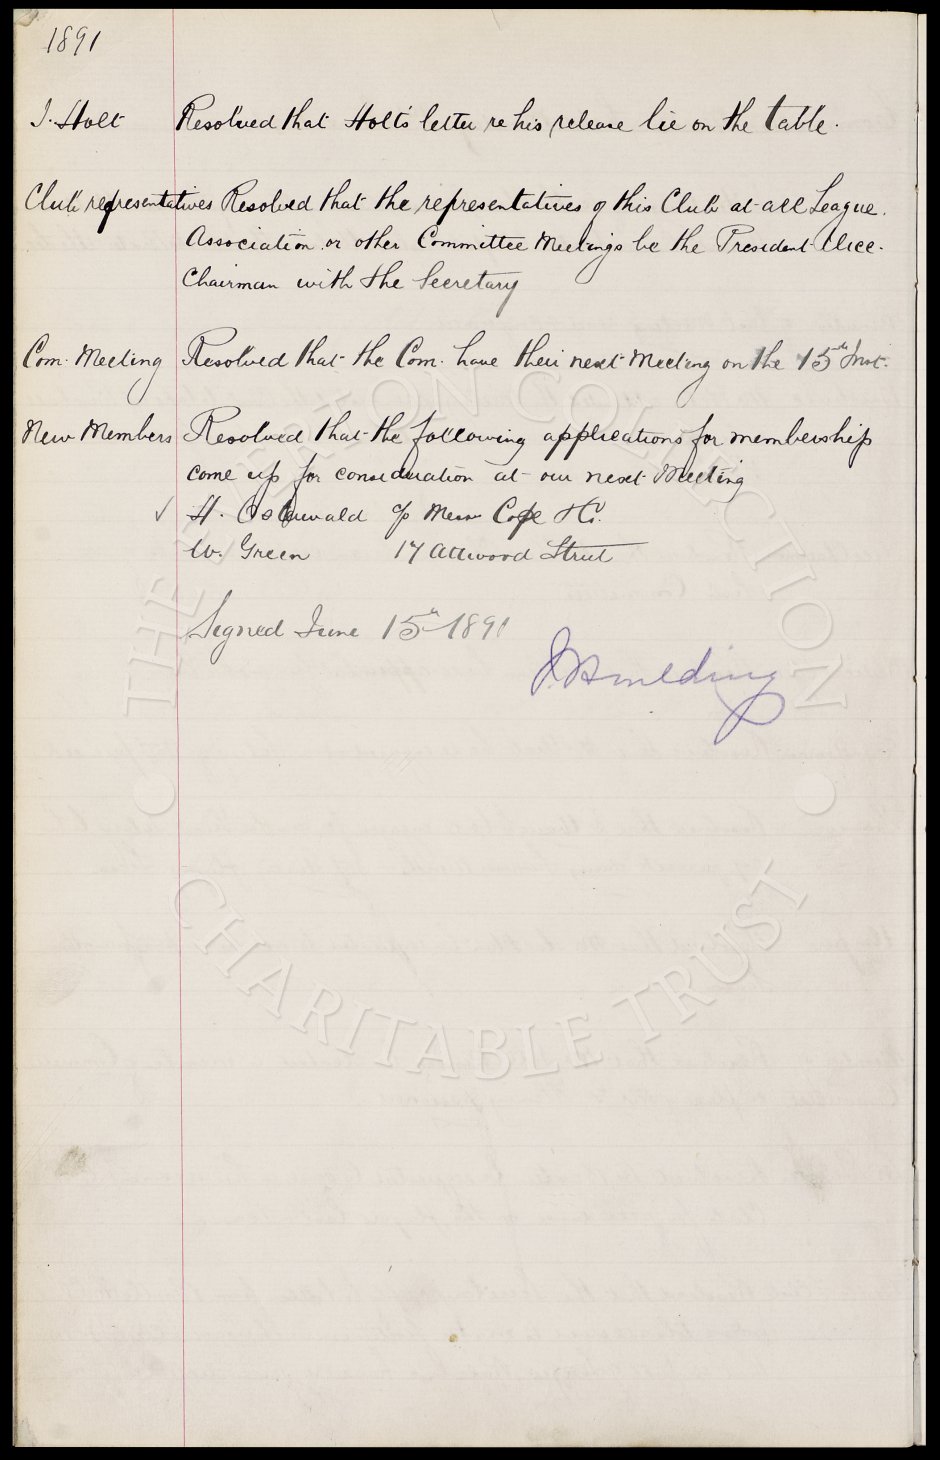 1891
J. Holt Resolved that Holt's letter re his release lie on the table.
Club representatives Resolved that the representatives of this Club at all League.
Association or other Committee Meetings be the President Vice-
Chairman with the Secretary
Com. Meeting Resolved that the Com. have their next Meeting on the 15th Inst.
New Members Resolved that the following applications for membership
come up for consideration at our next Meeting
✓ H. Osterwald c/o Messrs Cope & Co.
W. Green 17 Attwood Street
Signed June 15th 1891
J. Houlding
THE EVERTON COLLECTION
CHARITABLE TRUST